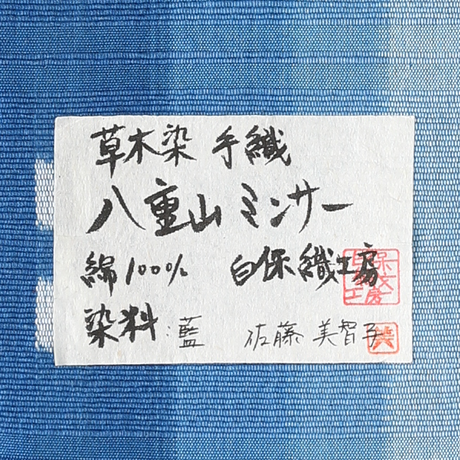 草木染 手織
八重山ミンサー
綿100% 白保織工房
染料:藍 佐藤美智子